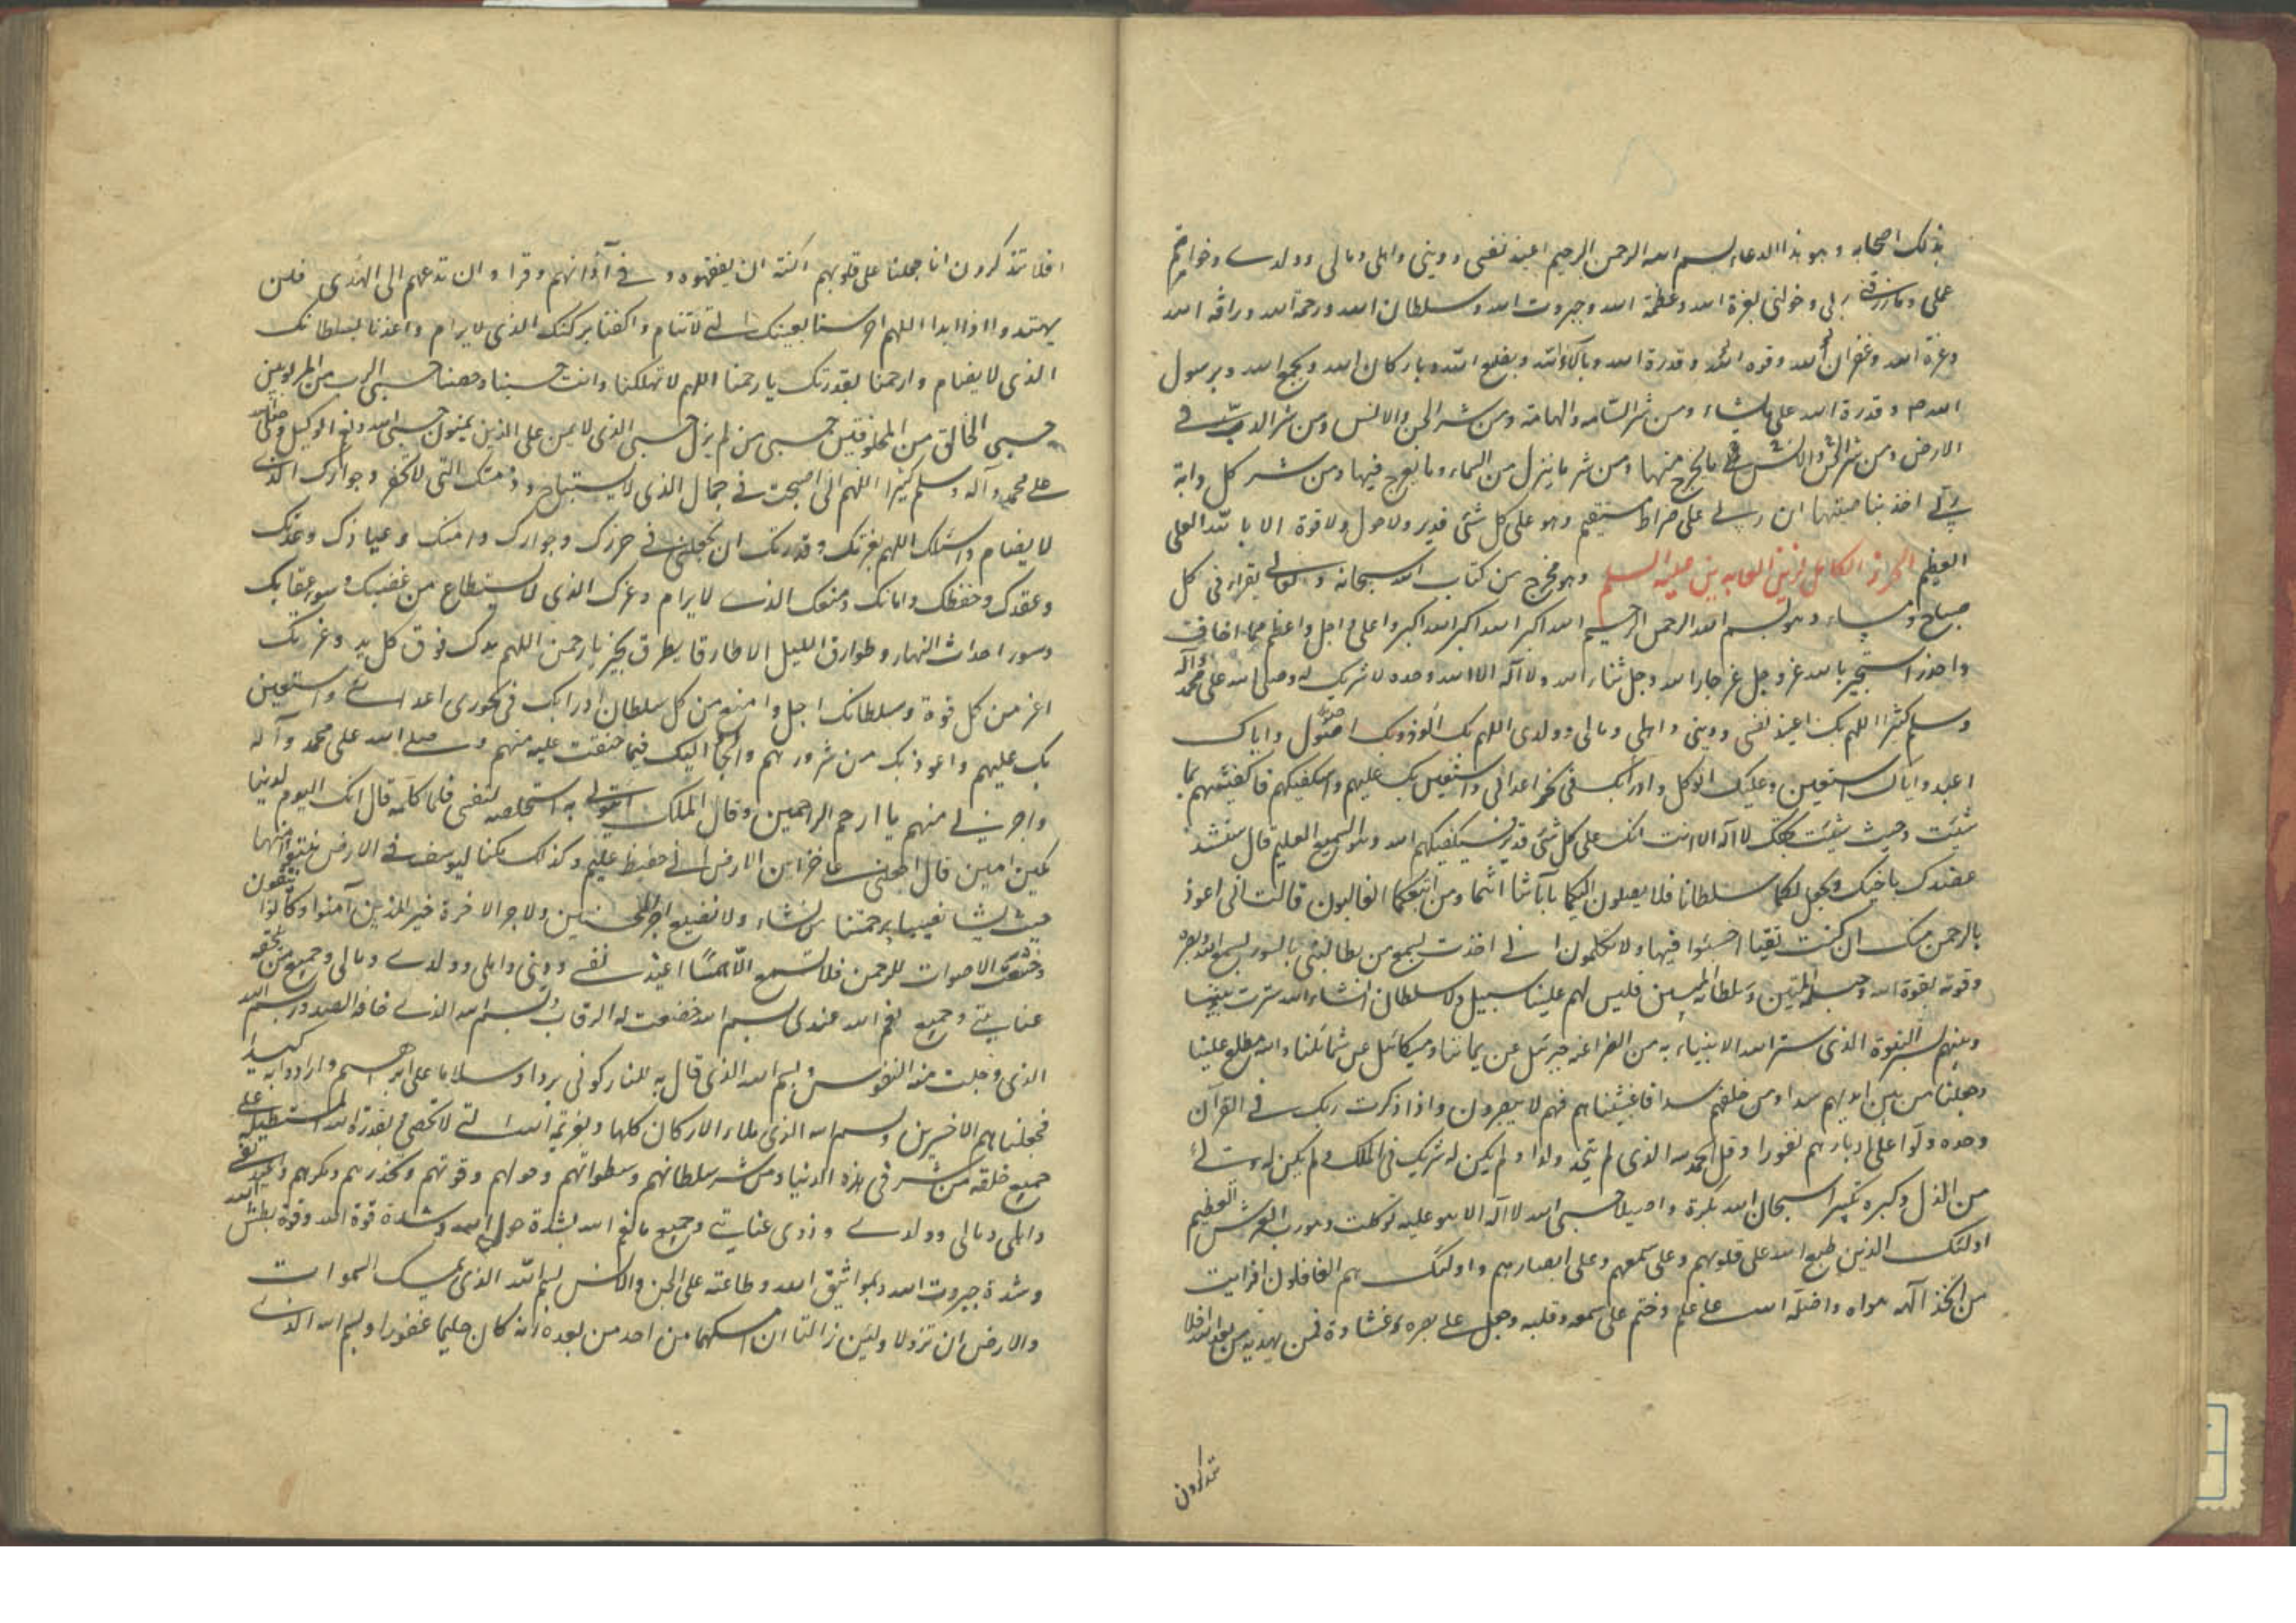 بذلك اصحابه وهو هذا الدعاء بسم الله الرحمن الرحيم اعيذ نفسى ودينى واهلى ومالى وولدى وخواتيم
عملى وما رزقنى ربى وخولنى بعزة الله وعظمة الله وجبروت الله وسلطان الله ورحمة الله ورافة الله
وعزة الله وغفران الله وقوة الله وقدرة الله وبآلاء الله وبصنع الله وباركان الله وبجمع الله وبرسول
الله ص وقدرة الله على ما يشاء ومن شر السامة والهامة ومن شر الجن والانس ومن شر ما دب فى
الارض ومن شر ما يخرج منها ومن شر ما ينزل من السماء وما يعرج فيها ومن شر كل دابة
ربى آخذ بناصيتها ان ربى على صراط مستقيم وهو على كل شئ قدير ولا حول ولا قوة الا بالله العلى
العظيم الحرز الكامل لزين العابدين عليه السلم وهو مخرج من كتاب الله سبحانه وتعالى يقرا فى كل
صباح ومساء وهو بسم الله الرحمن الرحيم الله اكبر الله اكبر الله اكبر واعلى واجل واعظم مما اخاف
واحذر استجير بالله عز وجل عز جار الله وجل ثناء الله ولا اله الا الله وحده لا شريك له وصلى الله على محمد وآله
وسلم كثيرا اللهم بك اعيذ نفسى ودينى واهلى ومالى وولدى اللهم بك الوذ وبك اصول واياك
اعبد واياك استعين وعليك اتوكل وادرأ بك فى نحر اعدائى واستعين بك عليهم واستكفيكهم فاكفنيهم بما
شئت وحيث شئت بحقك لا اله الا انت انك على كل شئ قدير فسيكفيكهم الله وهو السميع العليم قال سنشد
عضدك باخيك ونجعل لكما سلطانا فلا يصلون اليكما بآياتنا انتما ومن اتبعكما الغالبون قالت انى اعوذ
بالرحمن منك ان كنت تقيا اخسئوا فيها ولا تكلمون انى اخذت بسمع من يطالبنى بالسوء بسمع الله وبصره
وقوته بقوة الله وحبله المتين وسلطانه المبين فليس لهم علينا سبيل ولا سلطان انشاء الله سترت بيننا
وبينهم بستر النبوة الذى ستر الله الانبياء به من الفراعنة جبرئيل عن يماننا وميكائيل عن شمائلنا والله مطلع علينا
وجعلنا من بين ايديهم سدا ومن خلفهم سدا فاغشيناهم فهم لا يبصرون واذا ذكرت ربك فى القرآن
وحده ولوا على ادبارهم نفورا وقل الحمد لله الذى لم يتخذ ولدا ولم يكن له شريك فى الملك ولم يكن له ولى
من الذل وكبره تكبيرا سبحان الله بكرة واصيلا حسبى الله لا اله الا هو عليه توكلت وهو رب العرش العظيم
اولئك الذين طبع الله على قلوبهم وعلى سمعهم وعلى ابصارهم واولئك هم الغافلون افرايت
من اتخذ الهه هواه واضله الله على علم وختم على سمعه وقلبه وجعل على بصره غشاوة فمن يهديه من بعد الله افلا
تذكرون
افلا تذكرون انا جعلنا على قلوبهم اكنة ان يفقهوه وفى آذانهم وقرا وان تدعهم الى الهدى فلن
يهتدوا اذا ابدا اللهم احرسنا بعينك التى لا تنام واكنفنا بركنك الذى لا يرام واعذنا بسلطانك
الذى لا يضام وارحمنا بقدرتك يا رحمنا اللهم لا تهلكنا وانت حسبنا وحصننا حسبى الرب من المربوبين
حسبى الخالق من المخلوقين حسبى من لم يزل حسبى الذى لا يمن على الذين يمنون حسبى الله ونعم الوكيل وصلى الله
على محمد وآله وسلم كثيرا اللهم انى اصبحت فى حماك الذى لا يستباح وذمتك التى لا تخفر وجوارك الذى
لا يضام واسئلك اللهم بعزتك وقدرتك ان تجعلنى فى حرزك وجوارك وامنك وعياذك وعدتك
وعقدك وحفظك وامانك ومنعك الذى لا يرام وعزك الذى لا يستطاع من غضبك وسوء عقابك
وسوء احداث النهار وطوارق الليل الا طارقا يطرق بخير يا رحمن اللهم يدك فوق كل يد وعزتك
اعز من كل قوة وسلطانك اجل وامنع من كل سلطان ادرا بك فى نحور اعدائى واستعين
بك عليهم واعوذ بك من شرورهم والجأ اليك فيما خفت عليه منهم وصلى الله على محمد وآله
واجرنى منهم يا ارحم الراحمين وقال الملك ائتونى به استخلصه لنفسى فلما كلمه قال انك اليوم لدينا
مكين امين قال اجعلنى على خزاين الارض انى حفيظ عليم وكذلك مكنا ليوسف فى الارض يتبوء منها
حيث يشاء نصيب برحمتنا من نشاء ولا نضيع اجر المحسنين ولاجر الاخرة خير للذين آمنوا وكانوا يتقون
وخشعت الاصوات للرحمن فلا تسمع الا همسا اعيذ نفسى ودينى واهلى وولدى ومالى وجميع من تلحقه
عنايتى وجميع نعم الله عندى بسم الله خضعت له الرقاب وبسم الله الذى خافته الصدور وبسم الله
الذى وجلت منه النفوس وبسم الله الذى قال به للنار كونى بردا وسلاما على ابرهيم وارادوا به كيدا
فجعلناهم الاخسرين وبسم الله الذى ملاء الاركان كلها وبعزيمة الله التى لا تحصى وبقدرة الله المستطيلة على
جميع خلقه من شر من فى هذه الدنيا ومن شر سلطانهم وسطواتهم وحولهم وقوتهم وغدرهم ومكرهم واعيذ نفسى
واهلى ومالى وولدى وذوى عنايتى وجميع ما نعم الله بشدة حول الله وشدة قوة الله وقوة بطش الله
وشدة جبروت الله وبمواثيق الله وطاعته على الجن والانس بسم الله الذى يمسك السموات
والارض ان تزولا ولئن زالتا ان امسكهما من احد من بعده انه كان حليما غفورا وبسم الله الذى